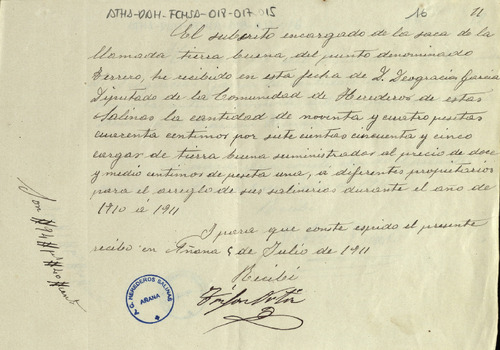 ATHA-DAH-FCHSA-018-017-015
16
11
El subscrito encargado de la saca de la
llamada tierra buena del punto denominado
Terrero, he recibido en esta fecha de D. Deogracias García
Diputado de la Comunidad de Herederos de estas
Salinas la cantidad de noventa y cuatro pesetas
cuarenta centimos por siete cientas cincuenta y cinco
cargas de tierra buena suministradas al precio de doce
y medio centimos de peseta una, á diferentes propietarios
para el arreglo de sus salineros durante el año de
1910 á 1911
I para que conste espido el presente
recibo en Añana 5 de Julio de 1911
Recibí
A. G. HEREDEROS SALINAS
AÑANA
Son #94#40#cent